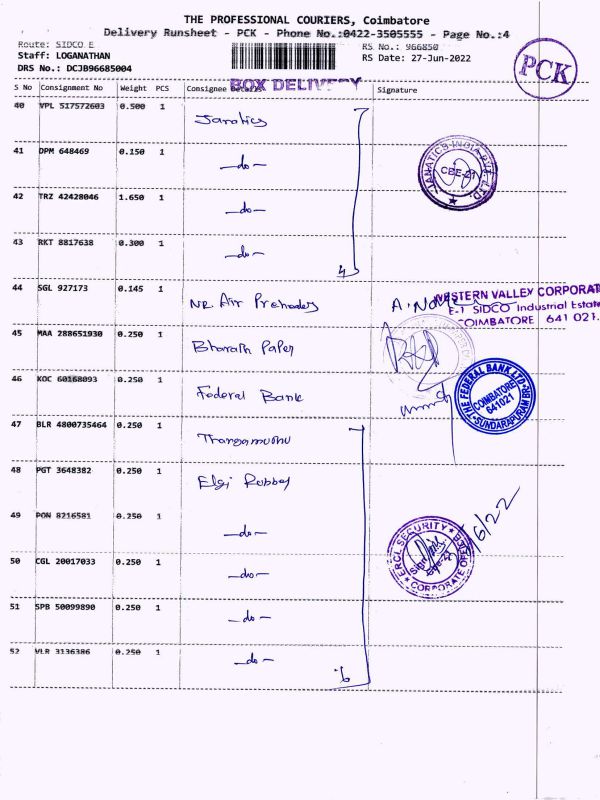 THE PROFESSIONAL COURIERS, Coimbatore
Delivery Runsheet - PCK - Phone No.:0422-3505555 - Page No.:4
Route: SIDCO E
RS No.: 966850
Staff: LOGANATHAN
RS Date: 27-Jun-2022
DRS No.: DCJB96685004
PCK
BOX DELIVERY
S No Consignment No Weight PCS Consignee Details Signature
40 VPL 517572603 0.500 1 Janatics
41 DPM 648469 0.150 1 -do-
JANATICS INDIA PVT. LTD.
CBE-21
42 TRZ 42428046 1.650 1 -do-
43 RKT 8817638 0.300 1 -do-
4
44 SGL 927173 0.145 1 NR Air
WESTERN VALLEY CORPORAT
E-1 SIDCO Industrial Estate
COIMBATORE 641 021.
45 MAA 288651930 0.250 1 Bharath Paper
46 KOC 60168093 0.250 1 Federal Bank
THE FEDERAL BANK LTD.
COIMBATORE
641021
SUNDARAPURAM BR.
47 BLR 4800735464 0.250 1
48 PGT 3648382 0.250 1 Elgi Rubber
49 PON 8216581 0.250 1 -do-
ERCL SECURITY
CORPORATE OFFICE
/6/22
50 CGL 20017033 0.250 1 -do-
51 SPB 50099890 0.250 1 -do-
52 VLR 3136386 0.250 1 -do-
6